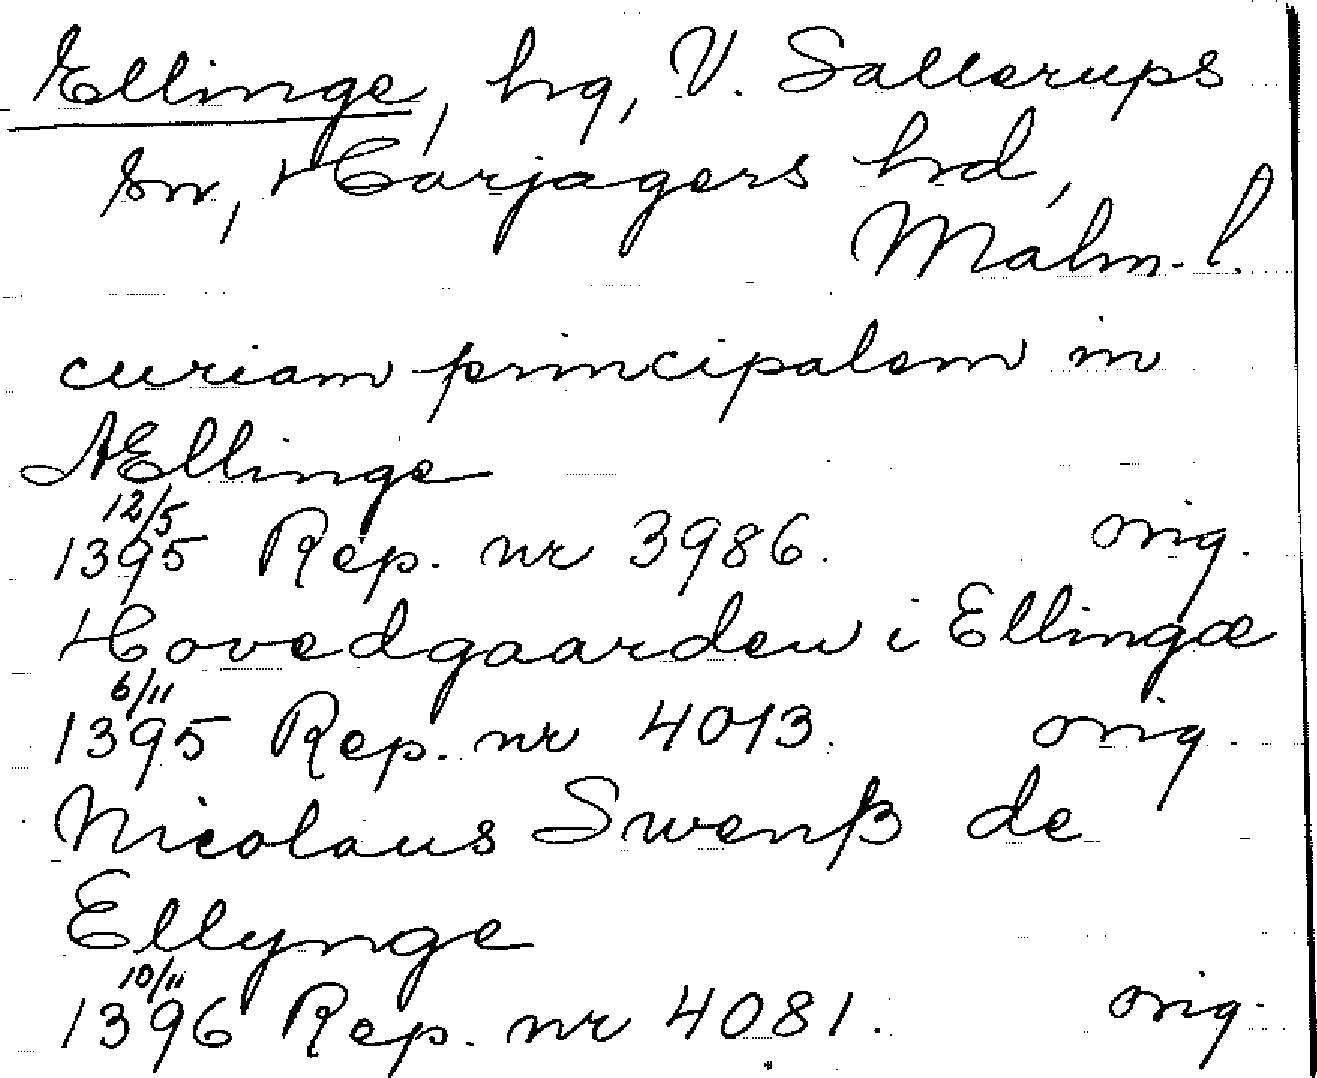 Ellinge, hg, V. Sallerups
sn, Harjagers hd,
Malm. l.
curiam principalem in
Ællinge
12/5
1395 Rep. nr 3986. orig.
Hovedgaarden i Ellingæ
6/11
1395 Rep. nr 4013. orig.
Nicolaus Swenß de
Ellynge
10/11
1396 Rep. nr 4081. orig.